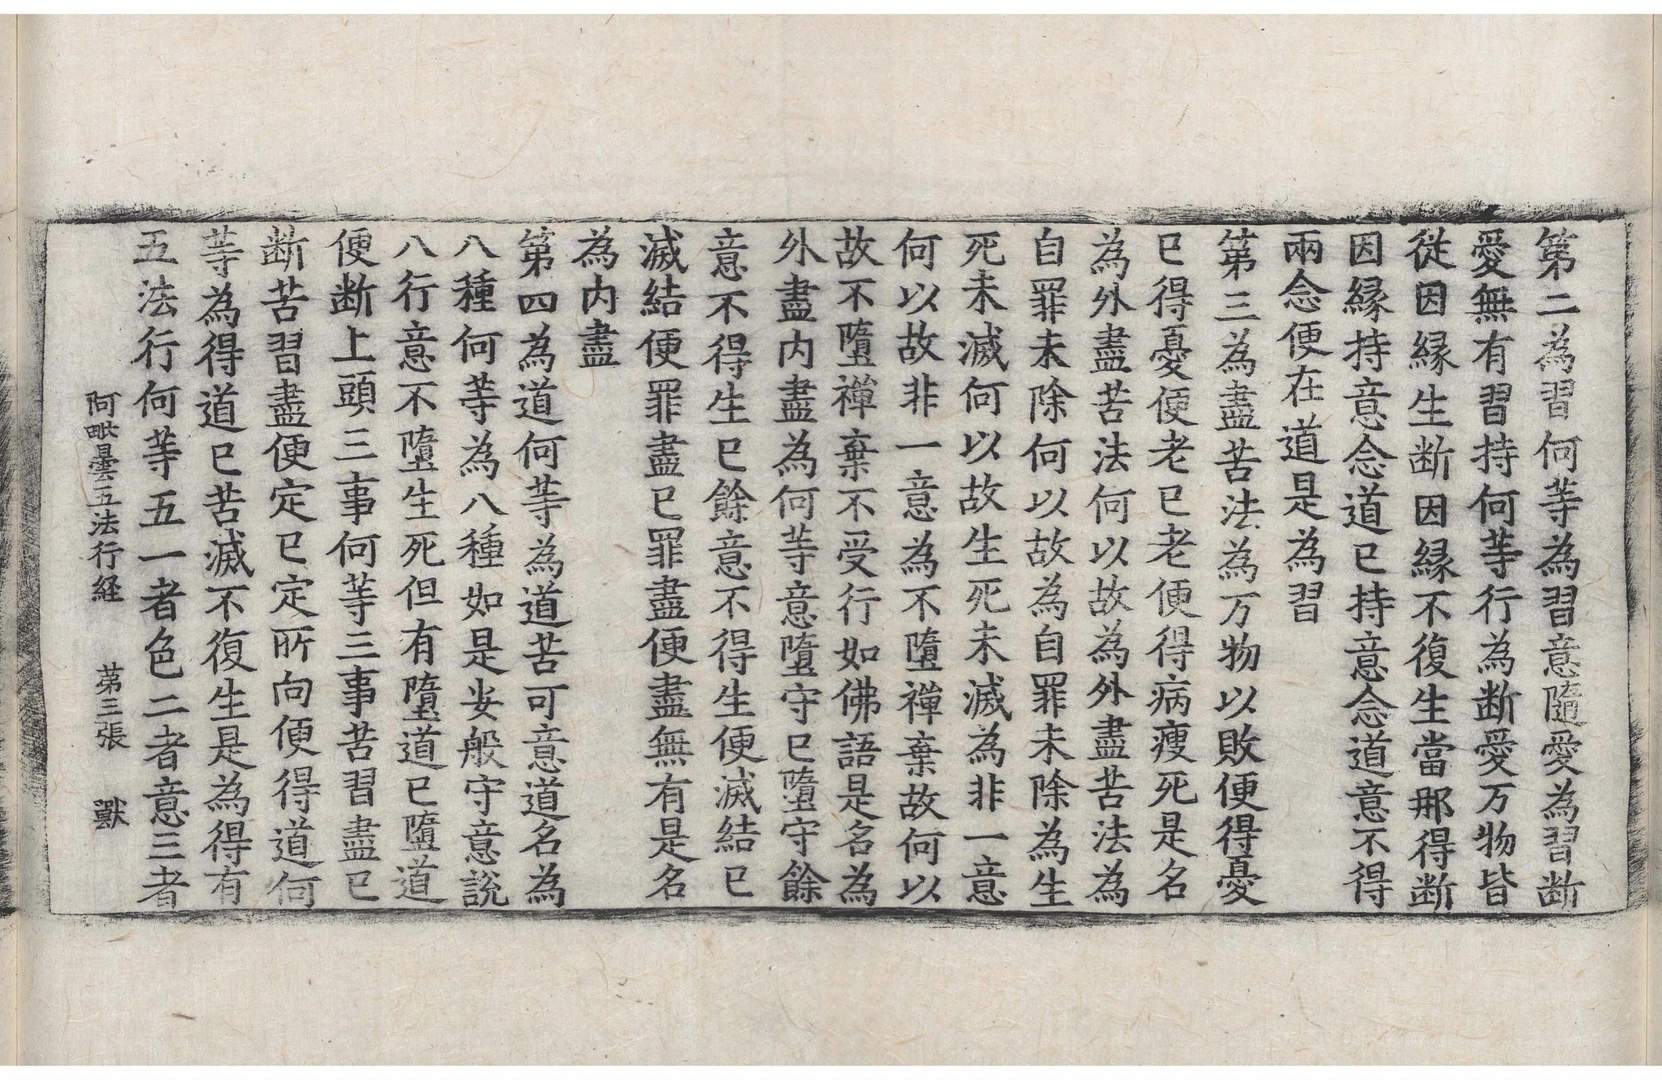 第二為習何等為習意隨愛為習斷
愛無有習持何等行為斷愛万物皆
從因緣生斷因緣不復生當那得斷
因緣持意念道已持意念道意不得
兩念便在道是為習
第三為盡苦法為万物以敗便得憂
已得憂便老已老便得病瘦死是名
為外盡苦法何以故為外盡苦法為
自罪未除何以故為自罪未除為生
死未滅何以故生死未滅為非一意
何以故非一意為不墮禪棄故何以
故不墮禪棄不受行如佛語是名為
外盡內盡為何等意墮守已墮守餘
意不得生已餘意不得生便滅結已
滅結便罪盡已罪盡便盡無有是名
為內盡
第四為道何等為道苦可意道名為
八種何等為八種如是安般守意說
八行意不墮生死但有墮道已墮道
便斷上頭三事何等三事苦習盡已
斷苦習盡便定已定所向便得道何
等為得道已苦滅不復生是為得有
五法行何等五一者色二者意三者
阿毗曇五法行経 苐三張 獸